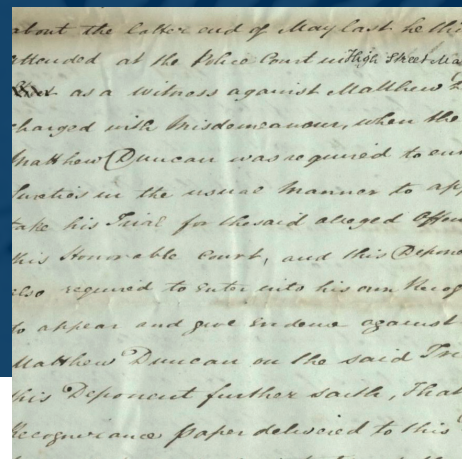 about the latter end of May last he thi
attended at the Police Court in High Street Ma
as a witness against Matthew
charged with Misdemeanour, when the
Matthew Duncan was required to en
Sureties in the usual Manner to app
take his Trial for the said alleged Offen
this Honorable Court, and this Depone
also required to Enter into his own Recog
to appear and give Evidence against
Matthew Duncan on the said Tri
this Deponent further saith, That
Recognizance paper delivered to this